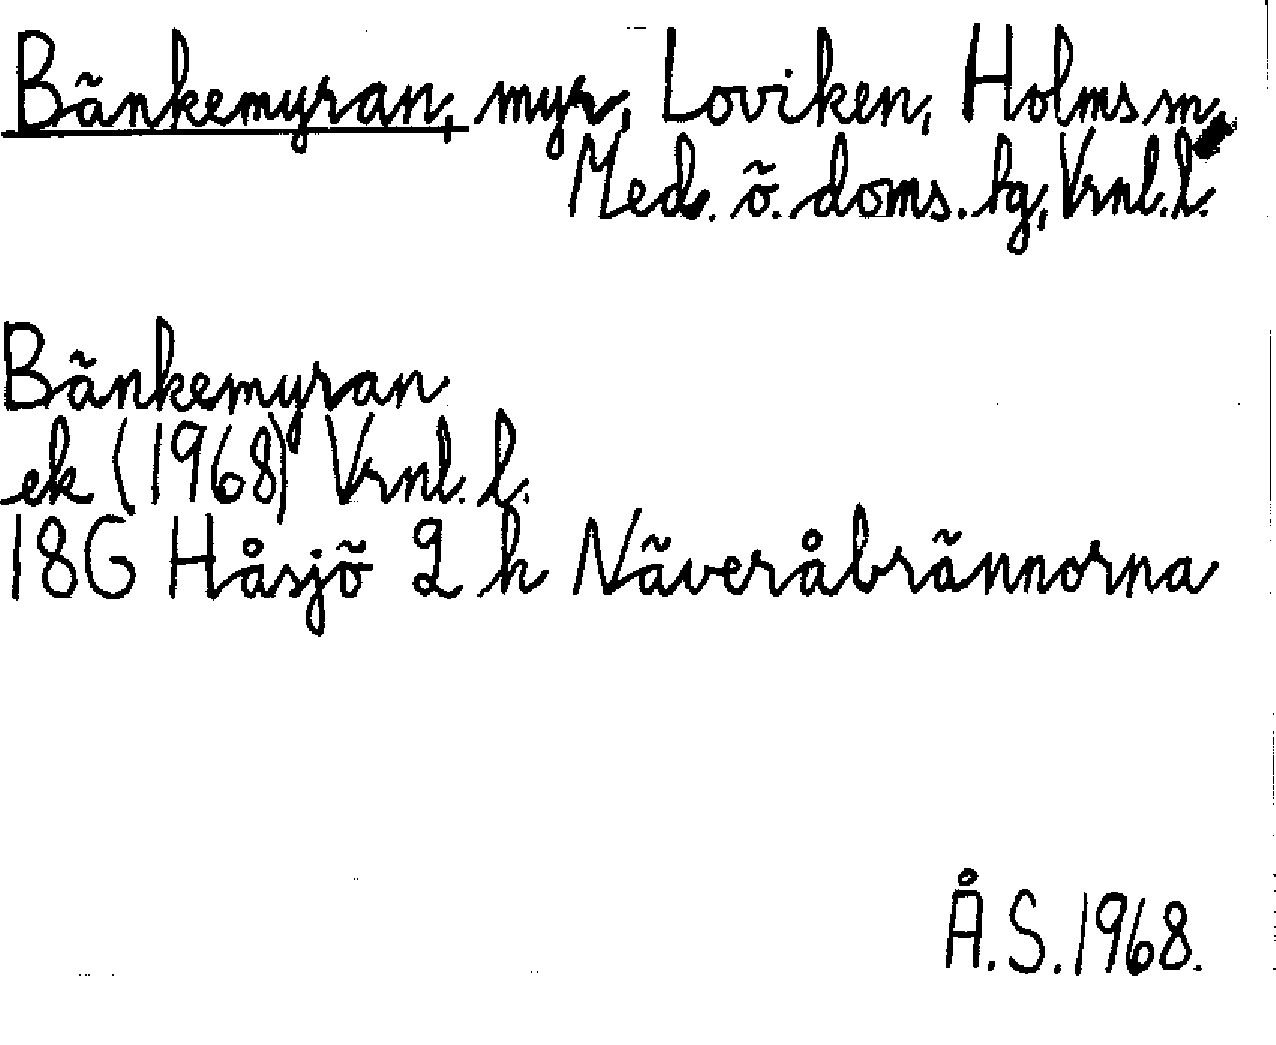 Bänkemyran, myr, Loviken, Holms sn,
Med. ö. doms. tg, Vrnl. l.
Bänkemyran
ek (1968) Vrnl. l.
18G Håsjö 2 h Näveråbrännorna
Å.S. 1968.